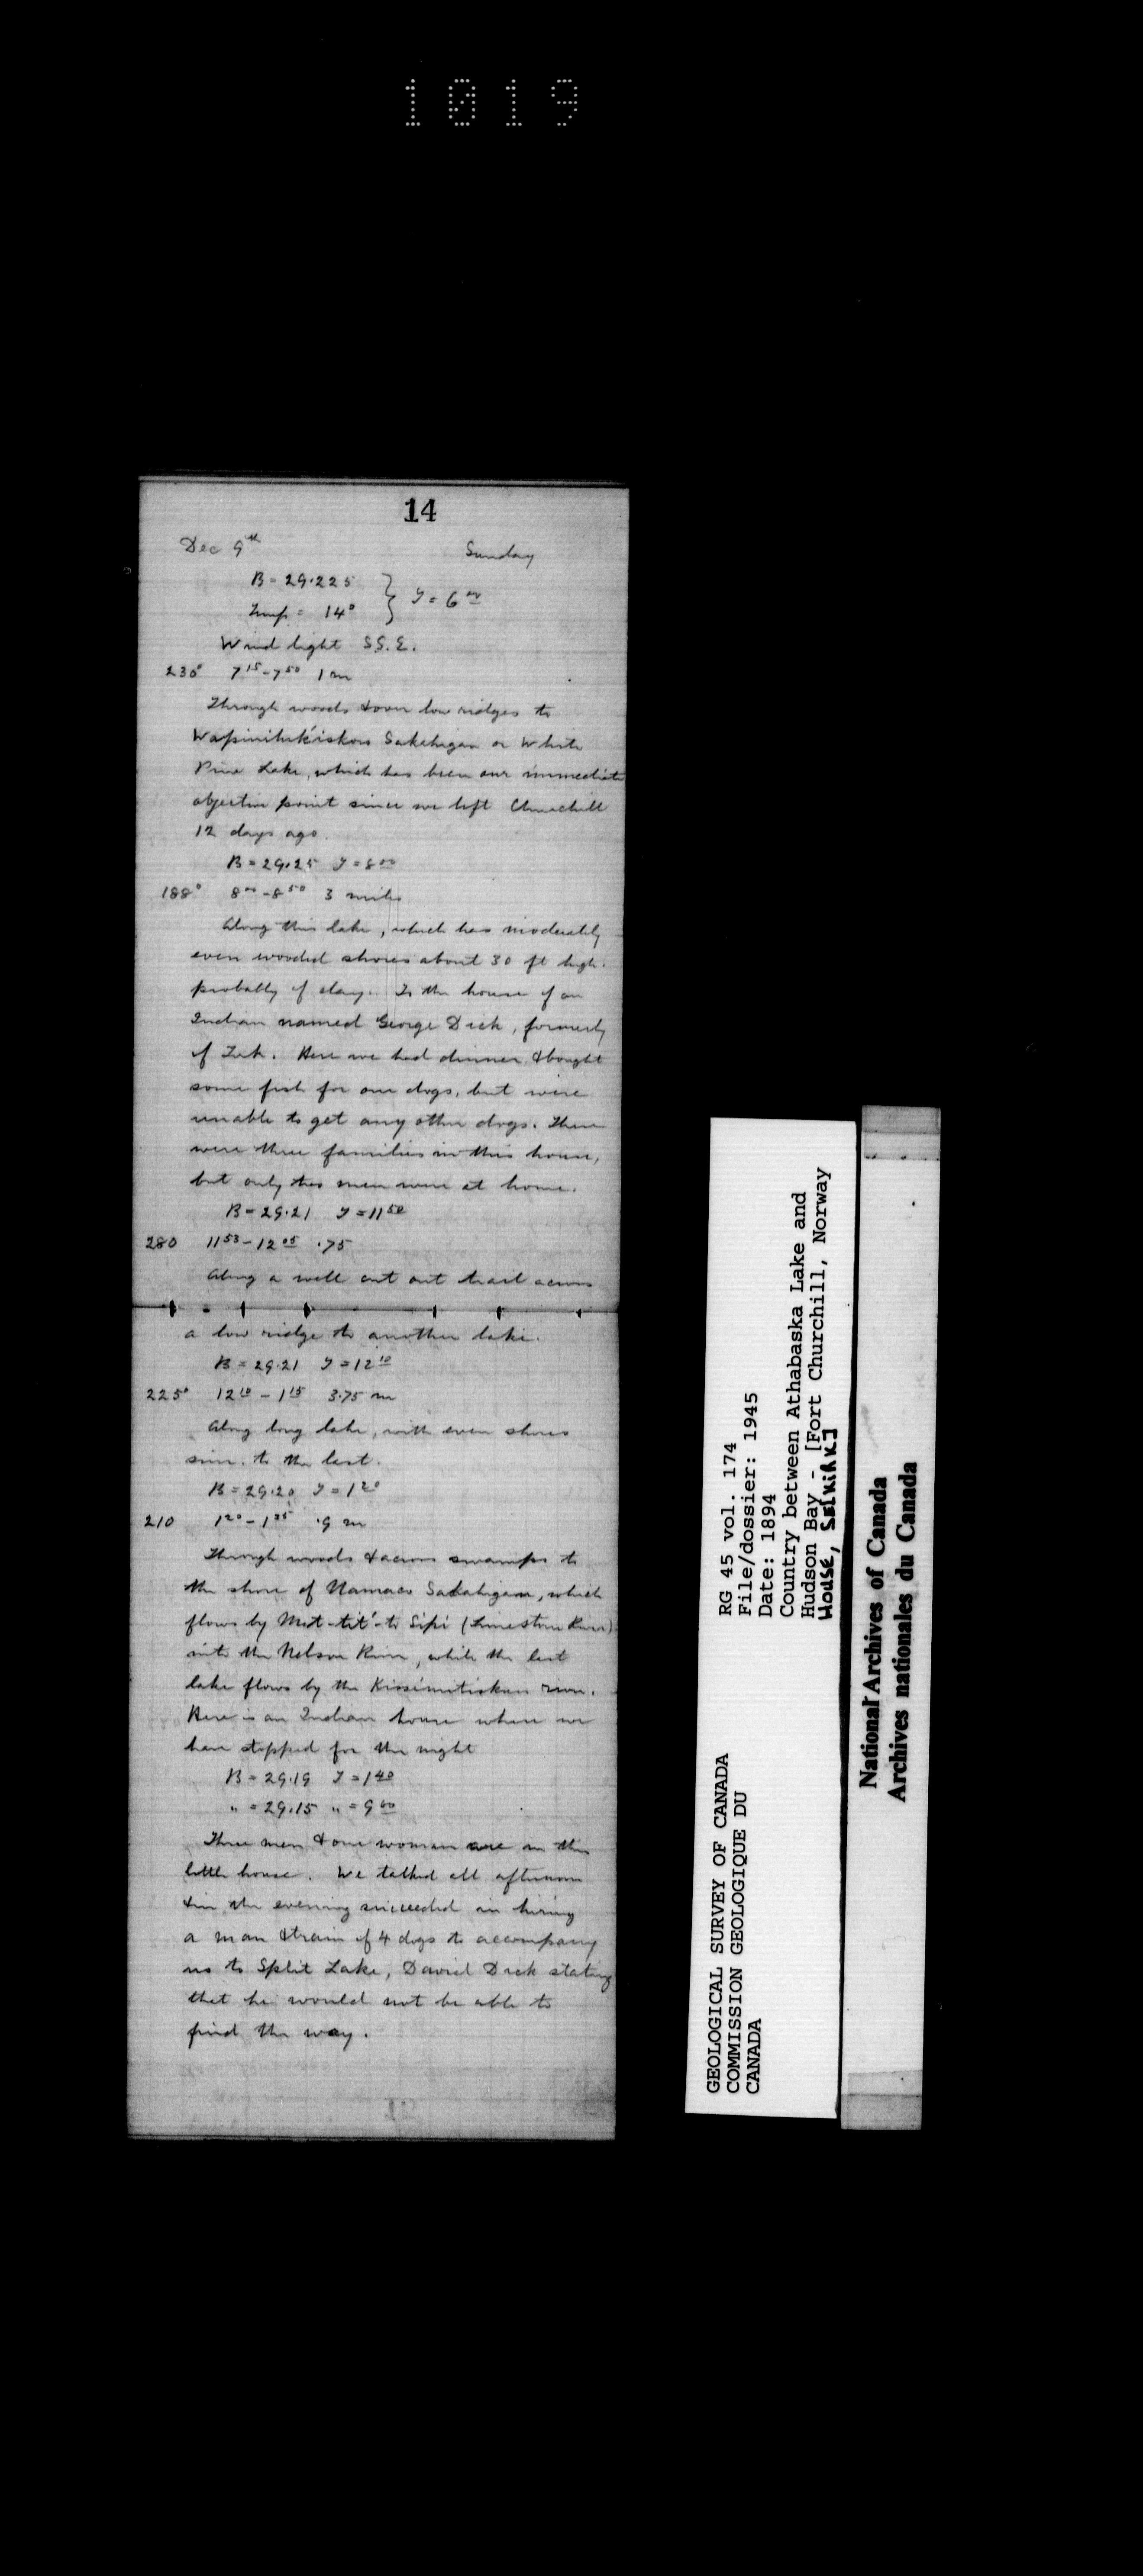 1019
14
Dec 9th Sunday
B = 29.225
Temp = 14° } T = 6 00
Wind light S.S.E.
230° 7 15 - 7 50 1 m
Through woods & over low ridges to
Sakahigan or White
Pine Lake, which has been our immediate
objective point since we left Churchill
12 days ago.
B = 29.25 T = 8 00
188° 8 00 - 8 50 3 miles
Along this lake, which has moderately
even wooded shores about 30 ft high.
probably of clay. To the house of an
Indian named George Dick, formerly
of York. Here we had dinner & bought
some fish for our dogs, but were
unable to get any other dogs. There
were three families in this house,
but only two men were at home.
B = 29.21 T = 11 50
280 11 53 - 12 05 .75
Along a well cut out trail across
a low ridge to another lake.
B = 29.21 T = 12 10
225° 12 10 - 1 15 3.75 m
Along long lake, with even shores
sim. to the last.
B = 29.20 T = 1 20
210 1 20 - 1 35 .9 m
Through woods & across swamps to
the shore of Namaco Sakahigan, which
flows by Mat-tit'-to Sipi (Limestone River)
into the Nelson River, while the last
lake flows by the Kissimitiskun river.
Here is an Indian house where we
have stopped for the night
B = 29.19 T = 1 40
" = 29.15 " = 9 00
Three men & one woman are in this
little house. We talked all afternoon
& in the evening succeeded in hiring
a man & train of 4 dogs to accompany
us to Split Lake, David Dick stating
that he would not be able to
find the way.
GEOLOGICAL SURVEY OF CANADA
COMMISSION GEOLOGIQUE DU
CANADA
RG 45 vol. 174
File/dossier: 1945
Date: 1894
Country between Athabaska Lake and
Hudson Bay - [Fort Churchill, Norway
House, Selkirk]
National Archives of Canada
Archives nationales du Canada